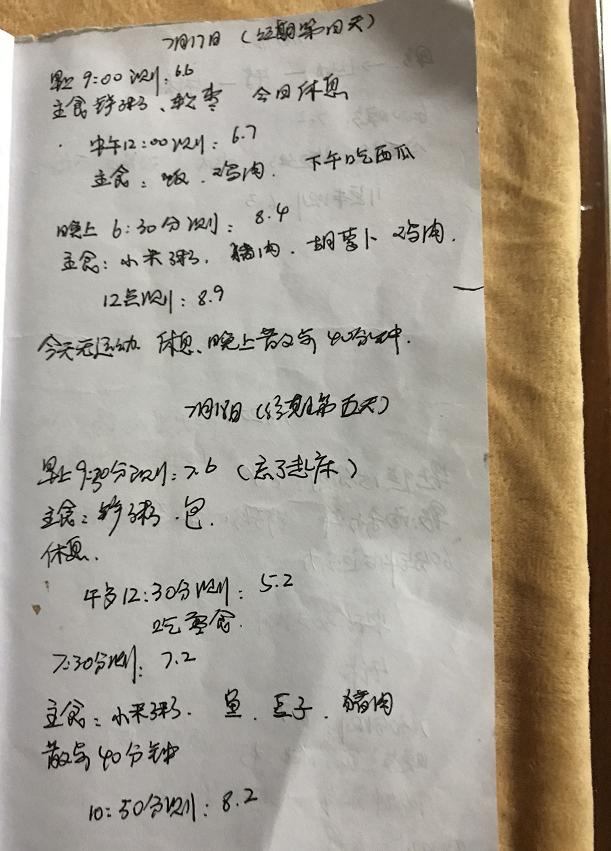 7月17日 (经期第四天)
早上 9:00 测: 6.6
主食 粥、软枣 今日休息
中午12:00测: 6.7
主食: 饭. 鸡肉. 下午吃西瓜
晚上 6:30分测: 8.4
主食: 小米粥. 猪肉. 胡萝卜 鸡肉.
12点测: 8.9
今天无运动 休息、晚上散步 40分钟.
7月18日 (经期第五天)
早上9:30分测: 7.6 (忘了起床)
主食: 粥. 包.
休息.
午12:30分测: 5.2
吃 食.
7:30分测: 7.2
主食: 小米粥. 鱼. 豆子. 猪肉
散步 40分钟
10:50分测: 8.2